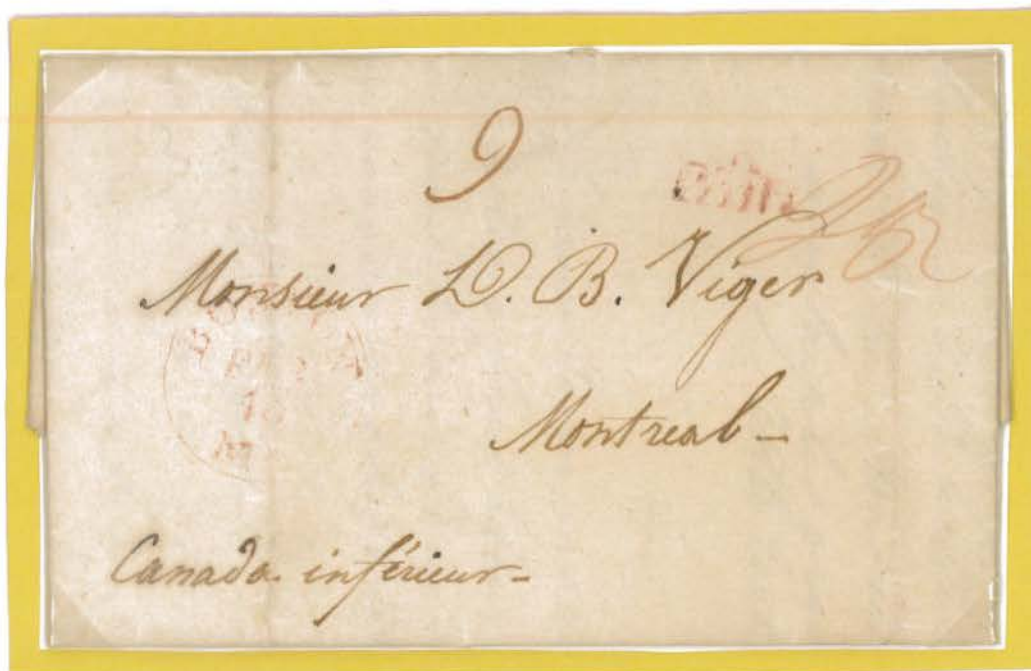 9
Monsieur D. B. Viger
Montreal -
Canada inférieur -